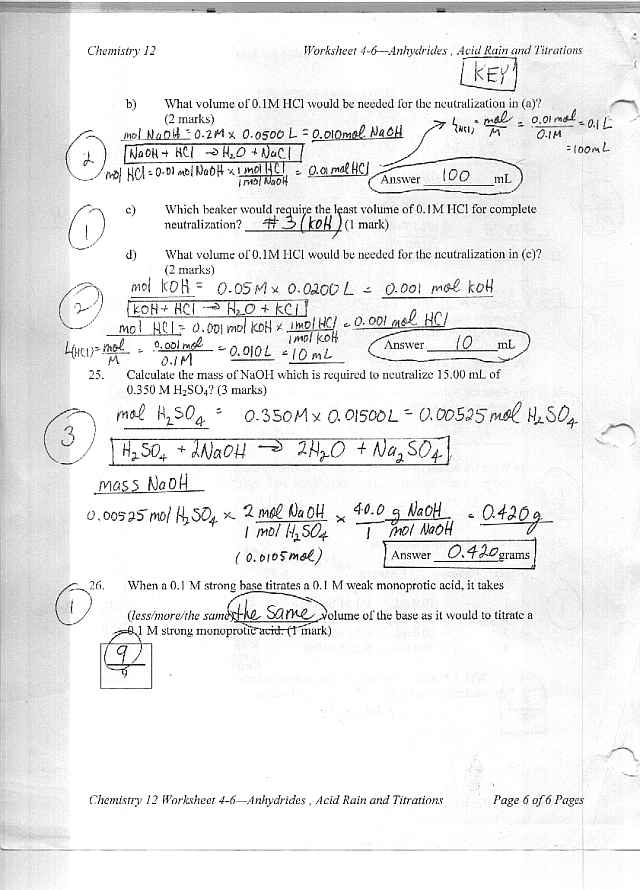 Chemistry 12 Worksheet 4-6—Anhydrides , Acid Rain and Titrations
KEY
b) What volume of 0.1M HCl would be needed for the neutralization in (a)?
(2 marks)
mol NaOH = 0.2M x 0.0500 L = 0.010mol NaOH
L(HCl) = mol/M = 0.01 mol/0.1M = 0.1 L
= 100mL
2
NaOH + HCl → H2O + NaCl
mol HCl = 0.01 mol NaOH x 1 mol HCl/1 mol NaOH = 0.01 mol HCl
Answer 100 mL
1
c) Which beaker would require the least volume of 0.1M HCl for complete
neutralization? #3 (KOH) (1 mark)
d) What volume of 0.1M HCl would be needed for the neutralization in (c)?
(2 marks)
mol KOH = 0.05M x 0.0200 L = 0.001 mol KOH
2
KOH + HCl → H2O + KCl
mol HCl = 0.001 mol KOH x 1mol HCl/1mol KOH = 0.001 mol HCl
L(HCl) = mol/M = 0.001 mol/0.1M = 0.010L = 10 mL
Answer 10 mL
25. Calculate the mass of NaOH which is required to neutralize 15.00 mL of
0.350 M H2SO4? (3 marks)
mol H2SO4 = 0.350M x 0.01500L = 0.00525 mol H2SO4
3
H2SO4 + 2NaOH → 2H2O + Na2SO4
mass NaOH
0.00525 mol H2SO4 x 2 mol NaOH/1 mol H2SO4 x 40.0 g NaOH/1 mol NaOH = 0.420g
(0.0105mol)
Answer 0.420 grams
1
26. When a 0.1 M strong base titrates a 0.1 M weak monoprotic acid, it takes
(less/more/the same) the same volume of the base as it would to titrate a
0.1 M strong monoprotic acid. (1 mark)
9
9
Chemistry 12 Worksheet 4-6—Anhydrides , Acid Rain and Titrations Page 6 of 6 Pages